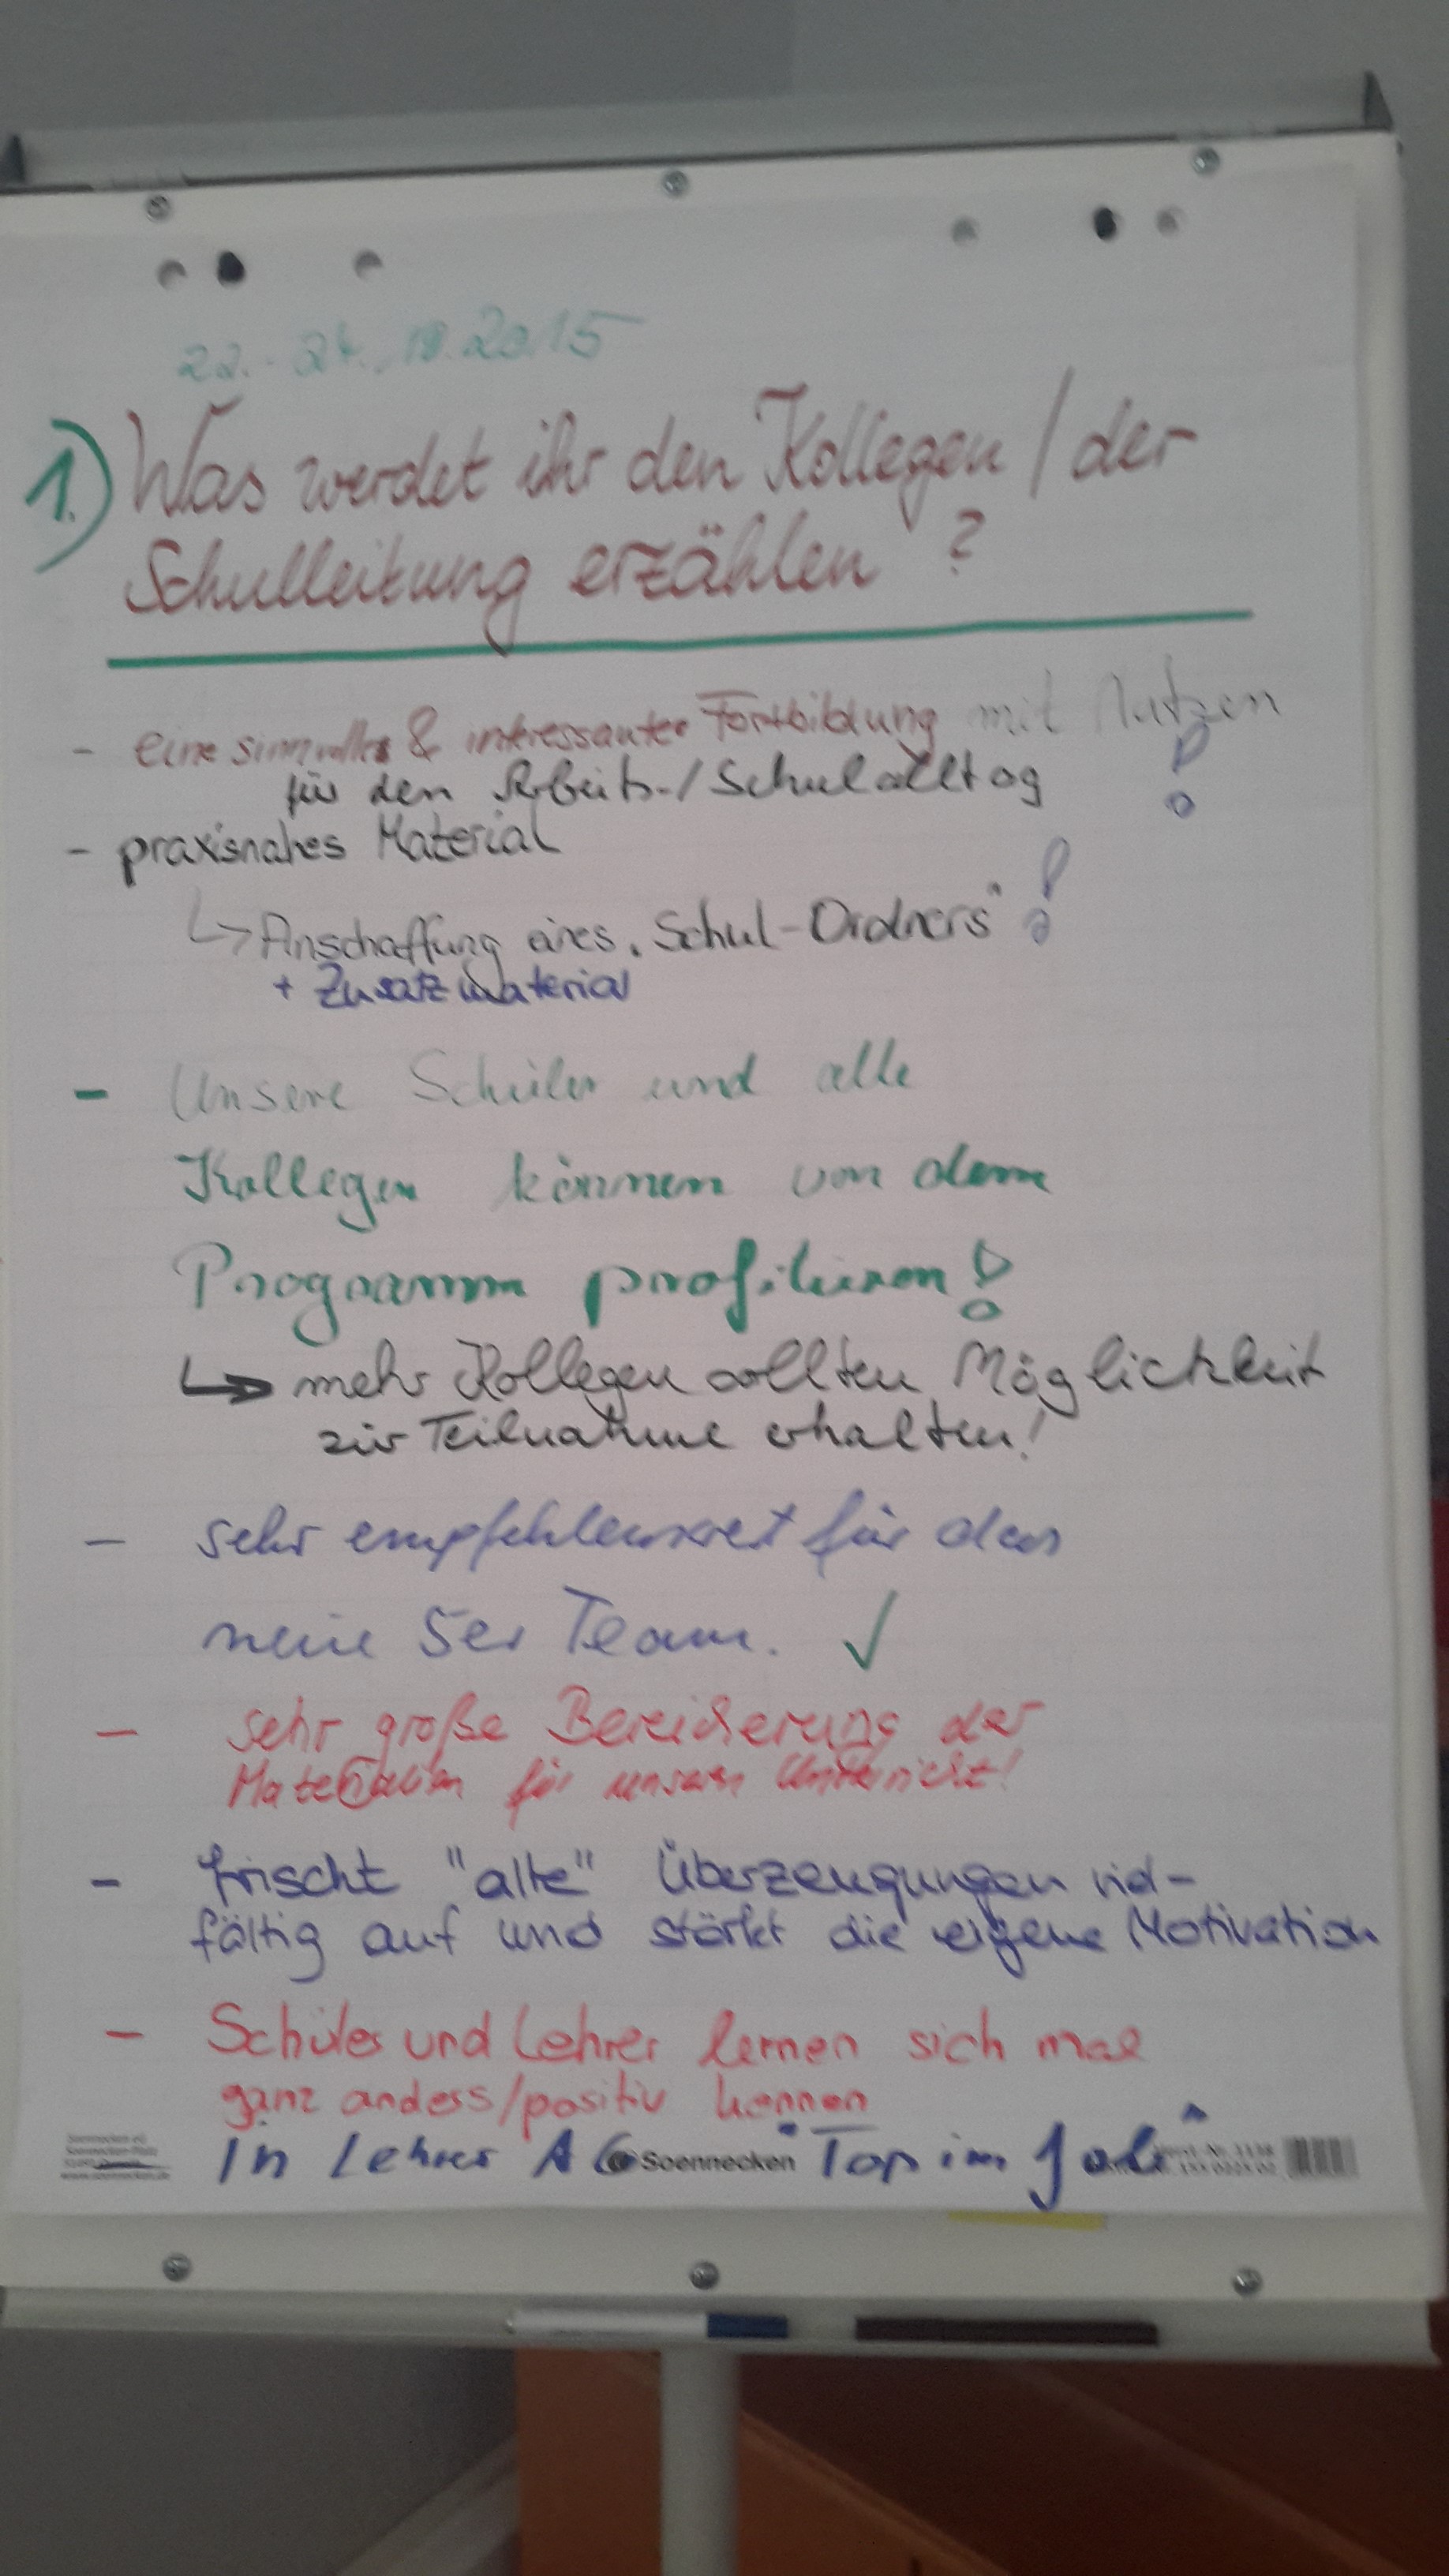 22.-24.10.2015
1.) Was werdet ihr den Kollegen / der
Schulleitung erzählen ?
- eine sinnvolle & interessante Fortbildung mit Nutzen
für den Arbeits-/Schulalltag !
- praxisnahes Material
↳ Anschaffung eines „Schul-Ordners" !
+ Zusatzmaterial
- Unsere Schüler und alle
Kollegen können von dem
Programm profitieren !
↳ mehr Kollegen sollten Möglichkeit
zur Teilnahme erhalten!
- sehr empfehlenswert für das
neue 5er Team. ✓
- sehr große Bereicherung der
Materialien für unseren Unterricht!
- frischt "alte" Überzeugungen viel-
fältig auf und stärkt die eigene Motivation
- Schüler und Lehrer lernen sich mal
ganz anders/positiv kennen
In Lehrer AG "Top im Job"
Soennecken